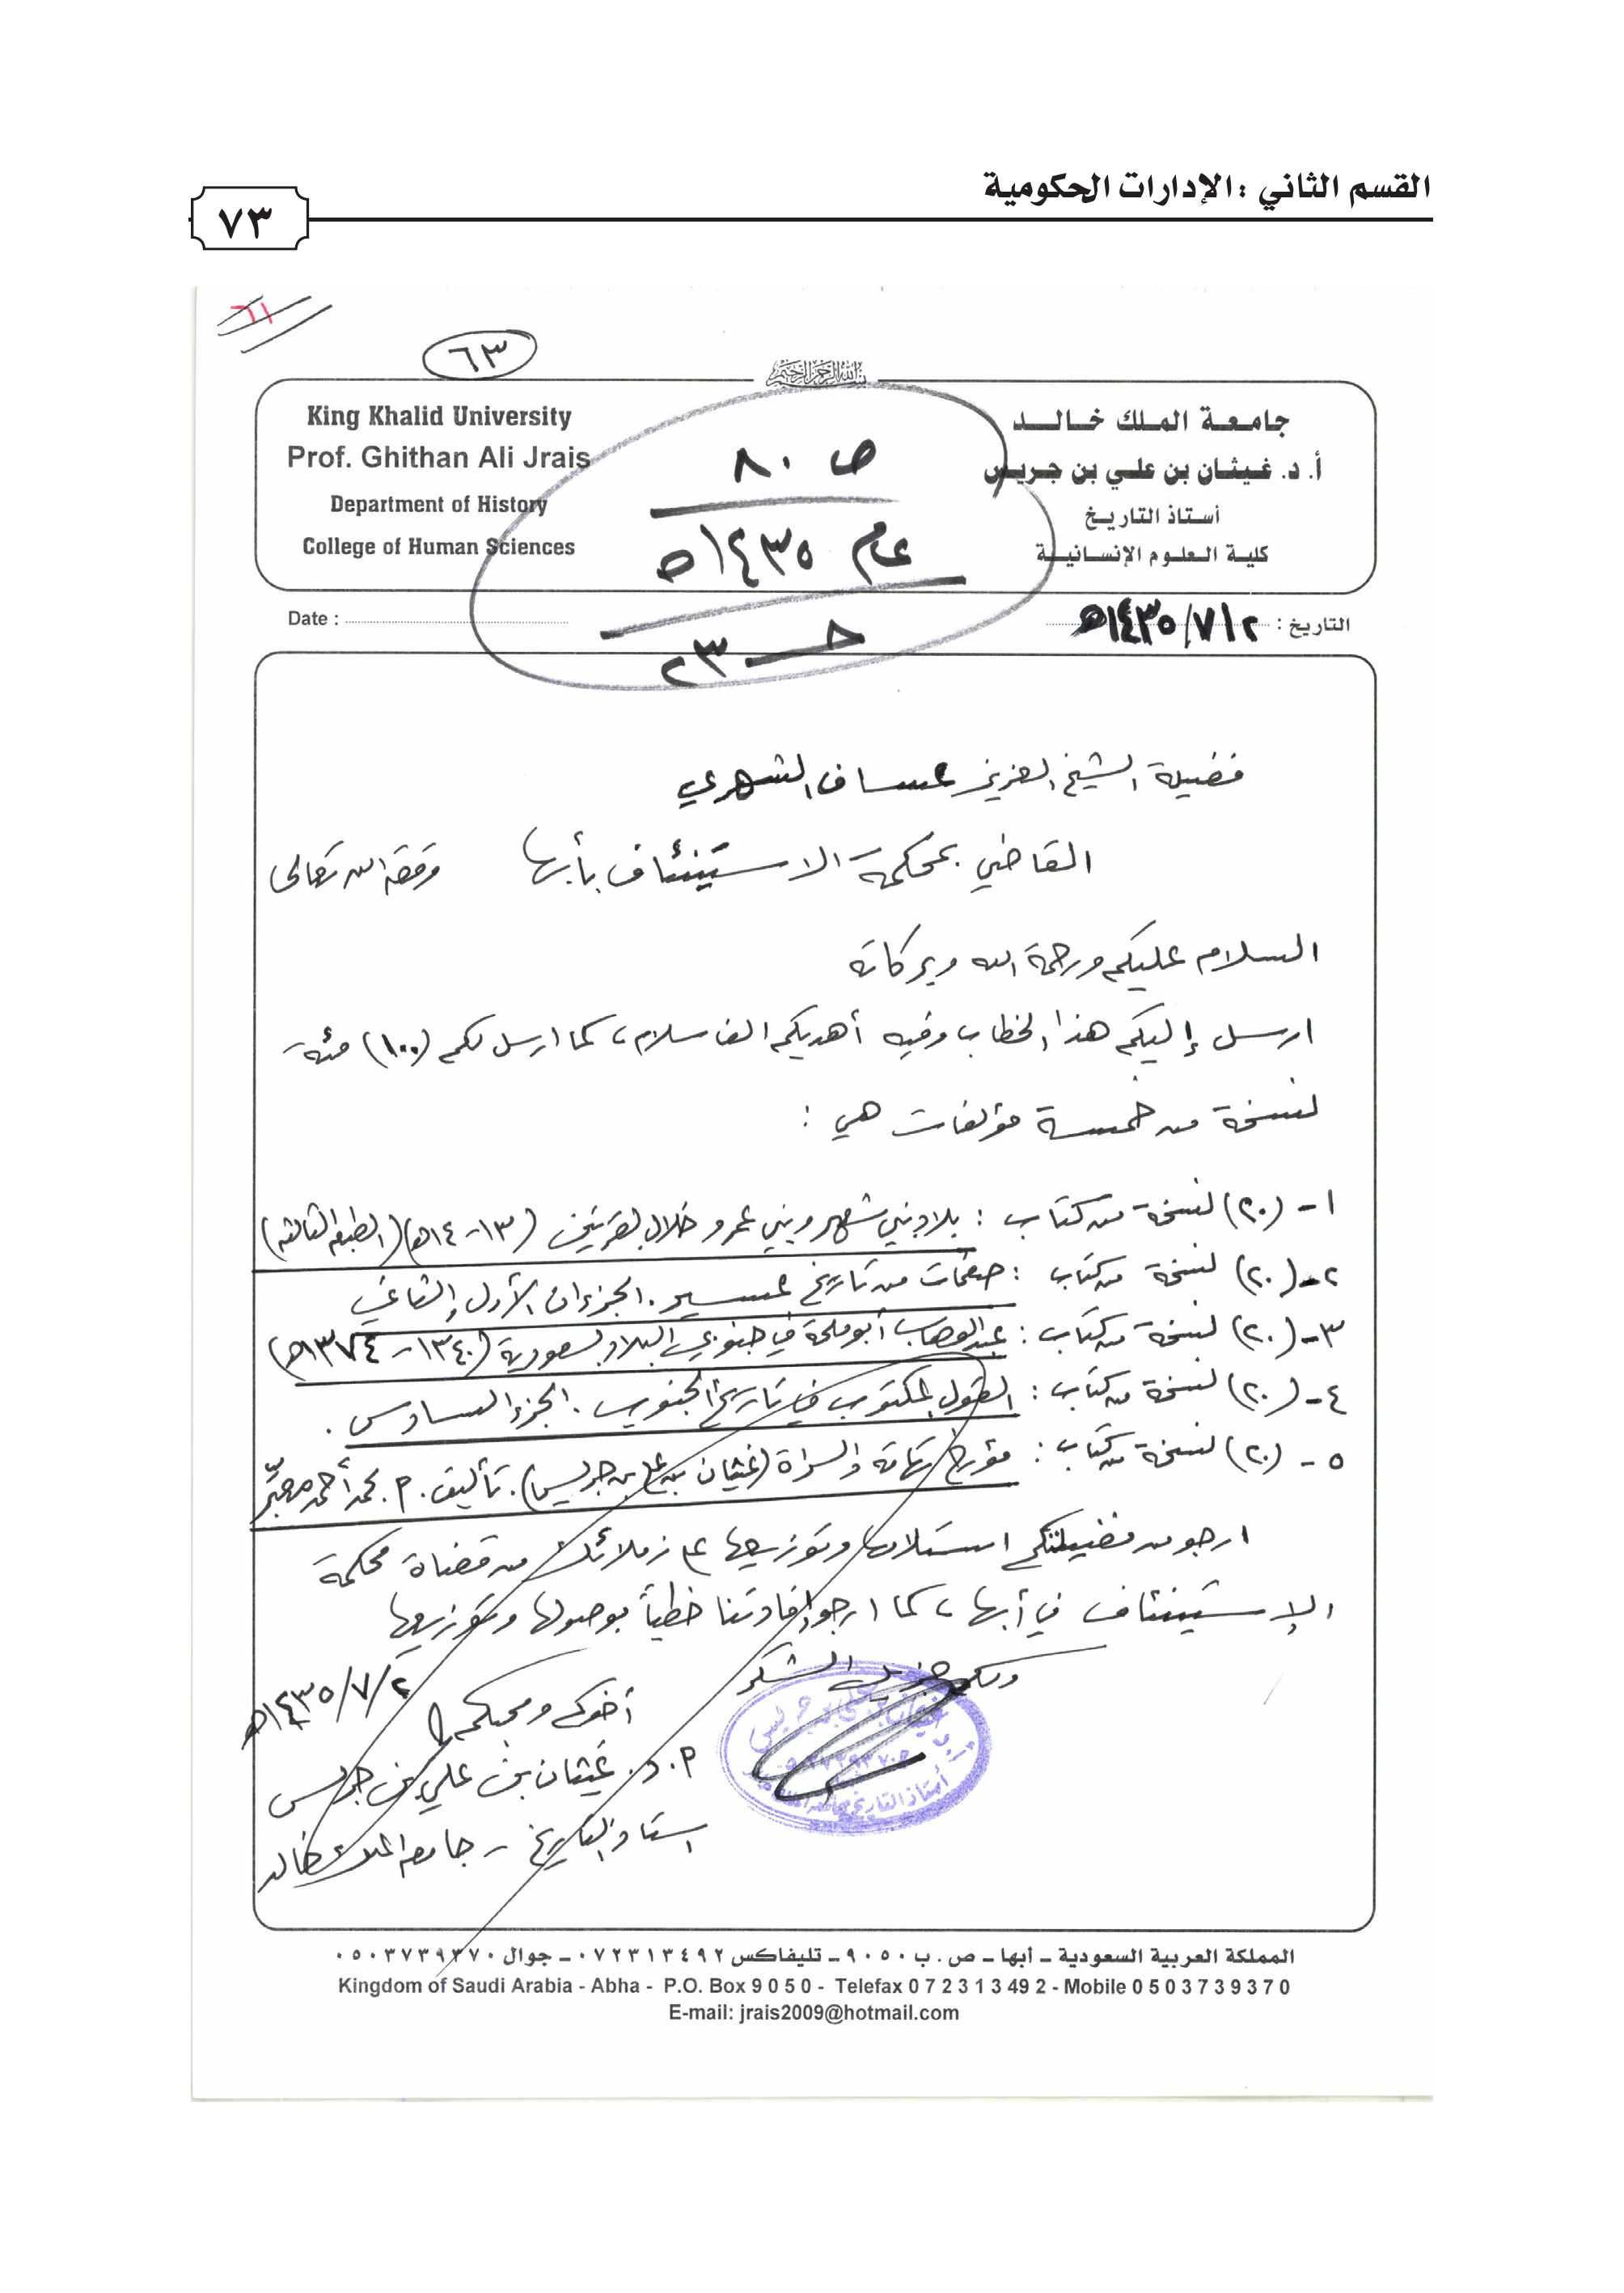 القسم الثاني : الإدارات الحكومية
٧٣
٦١
٦٣
بسم الله الرحمن الرحيم
King Khalid University
Prof. Ghithan Ali Jrais
Department of History
College of Human Sciences
جامعة الملك خالد
أ. د. غيثان بن علي بن جريس
أستاذ التاريخ
كلية العلوم الإنسانية
ص ٨٠
عام ١٤٣٥هـ
حـ ٢٣
Date :
التاريخ : ١٤٣٥/٧/٢هـ
فضيلة الشيخ العزيز عساف الشهري
القاضي بمحكمة الاستينئاف بأبها وفقه الله تعالى
السلام عليكم ورحمة الله وبركاته
ارسل إليكم هذا الخطاب وفيه أهديكم الف سلام، كما ارسل لكم (١٠٠) مئة
نسخة من خمسة مؤلفات هي :
١- (٢٠) نسخة من كتاب : بلاد بني شهر وبني عمرو خلال القرنين (١٣-١٤هـ) (الطبعة الثالثة)
٢- (٢٠) نسخة من كتاب : صفحات من تاريخ عسير . الجزءان الأول والثاني
٣- (٢٠) نسخة من كتاب : عبدالوهاب أبو ملحة في جنوبي البلاد السعودية (١٣٤٠- ١٣٧٤هـ)
٤- (٢٠) نسخة من كتاب : القول المكتوب في تاريخ الجنوب . الجزء السادس .
٥- (٢٠) نسخة من كتاب : مؤرخ تهامة والسراة (غيثان بن علي بن جريس) . تأليف . م . محمد أحمد معبّر
ارجو من فضيلتكم استلامها وتوزيعها على زملائك من قضاة محكمة
الإستينئاف في أبها، كما ارجو إفادتنا خطياً بوصولها وتوزيعها
ولكم جزيل الشكر
أخوك ومحبكم
١٤٣٥/٧/٢هـ
أ.د. غيثان بن علي بن جريس
استاذ التاريخ - جامعة الملك خالد
غيثان بن علي بن جريس
أستاذ التاريخ
المملكة العربية السعودية - أبها - ص . ب ٩٠٥٠ - تليفاكس ٠٧٢٣١٣٤٩٢ - جوال ٠٥٠٣٧٣٩٣٧٠
Kingdom of Saudi Arabia - Abha - P.O. Box 9 0 5 0 - Telefax 0 7 2 3 1 3 49 2 - Mobile 0 5 0 3 7 3 9 3 7 0
E-mail: jrais2009@hotmail.com